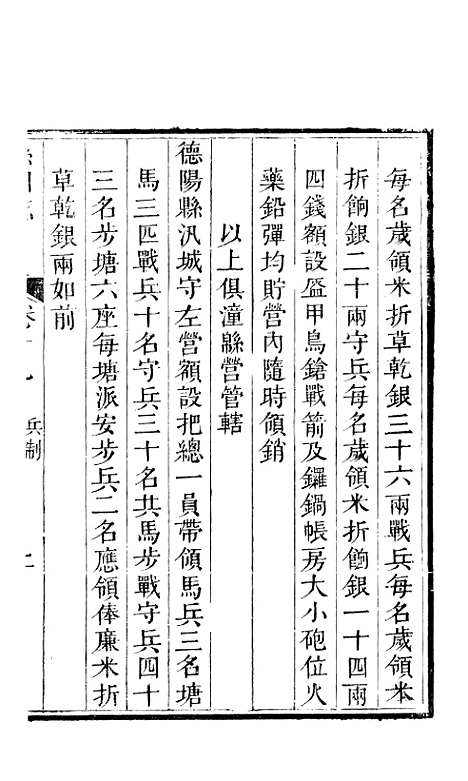 每名歲領米折草乾銀三十六兩戰兵每名歲領米
折餉銀二十兩守兵每名歲領米折餉銀一十四兩
四錢額設盔甲鳥鎗戰箭及鑼鍋帳房大小砲位火
藥鉛彈均貯營內隨時領銷
以上俱潼縣營管轄
德陽縣汎城守左營額設把總一員帶領馬兵三名塘
馬三匹戰兵十名守兵三十名共馬步戰守兵四十
三名步塘六座每塘派安步兵二名應領俸廉米折
草乾銀兩如前
兵制